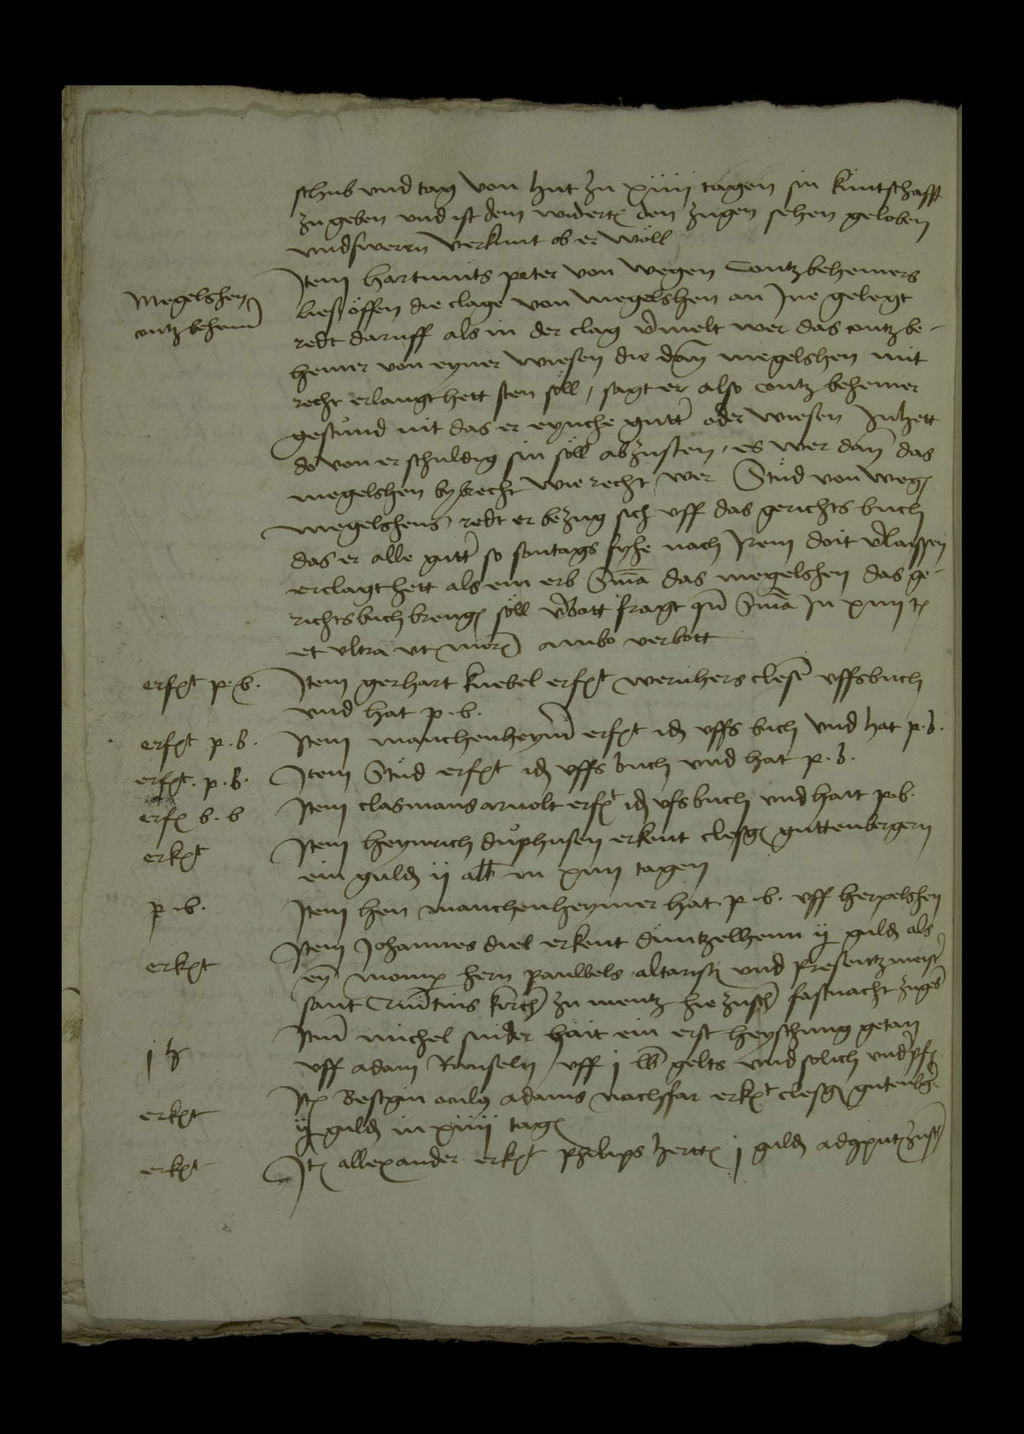 schub und tag von hut zu xiiii tagen sin kuntschafft
zu geben und ist dem widerteil den zugen sehen geloben
und sweren verkunt ob er woll
Item hartmuts peter von wegen Contz behemers
Megelshen
contz behemer
lies offen die clage von megelshen an Ine gelegt
redt daruff als in der clag vermelt wer das contz be-
hemer von eyner wiesen die dan megelshen mit
recht erlangt hett sten soll, sagt er also contz behemer
gestund nit das er eyniche gutter oder wiesen Inhett
do von er schuldig sin soll abzusten, es wer dan das
megelshen bybrecht wie recht wer Stud von wegen
megelshens redt er bezug sich uff das gerichts buch
das er alle gutter so sontags fyhe nach Irem doit verlaissen
erclagt hett als ein erb Sentencia das megelshen das ge-
richtsbuch brengen soll verbott fragt quando Sentencia In xiiii tagen
et ultra ut moris ambo verbott
erfolgt p. b. Item gerhart knebel erfolgt wernhers clesen uffs buch
und hat p. b.
erfolgt p. b. Item manchenheymer erfolgt idem uffs buch und hat p. b.
erfolgt p. b. Item Stud erfolgt idem uffs buch und hat p. b.
erfolgt b. b Item clasmans arnolt erfolgt idem ufs buch und hait p. b.
erkent Item heynrich duphusen erkent clesgin guttenbergern
ein gulden ii alb in xiiii tagen
p. b. Item hen manchenheymer hat p. b. uff herpelshen
erkent Item Johannes diel erkent duntzelhenn ii gulden als
eyn momper hern pauwels altaristen und presentzmeister
sant Quintins kirchen zu mentz hie zuschen fastnacht zugeben
i h Item michel snider hait ein erst heyschung getan
uff adam Ronseln uff i lb gelts und solich underpfand
erkent Item Bestgin oculus adams nachfar erkent clesgin gutenberger
ii gulden in xiiii tagen
erkent Item allexander erkent philips hertten i gulden ad computandum